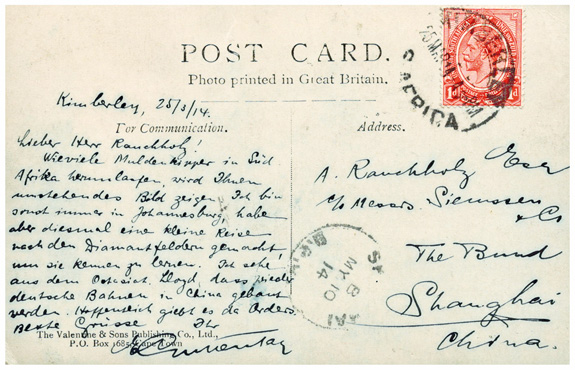 POST CARD.
Photo printed in Great Britain.
For Communication.
Address.
Kimberley, 25/3/14.
Lieber Herr Rauchholz!
Wieviele Muldenkipper in Süd
Afrika herumlaufen, wird Ihnen
umstehendes Bild zeigen. Ich bin
sonst immer in Johannesburg, habe
aber diesmal eine kleine Reise
nach den Diamantfeldern gemacht
um sie kennen zu lernen. Ich sehe
aus dem Ostasiat. Lloyd, dass wieder
deutsche Bahnen in China gebaut
werden. Hoffentlich giebt es da Orders.
Beste Grüsse Ihr
The Valentine & Sons Publishing Co., Ltd.,
P.O. Box 1685, Cape Town
A. Rauchholz Esq
c/o Messrs. Siemssen
& Co
The Bund
Shanghai
China.
S. AFRICA
1d 1d
B.P.O.
MY 10
14